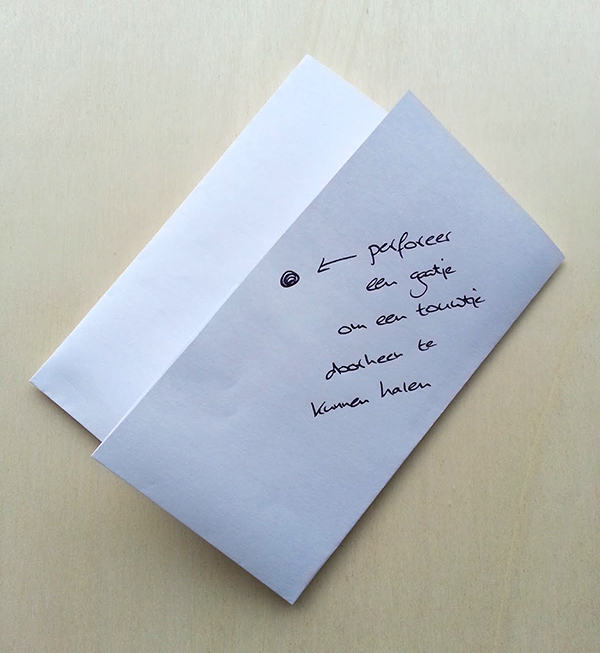 perforeer
een gaatje
om een touwtje
doorheen te
kunnen halen